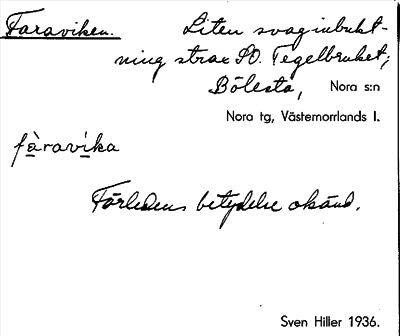 Faraviken. Liten svag inbukt-
ning strax SO. Tegelbruket,
Bölesta, Nora s:n
Nora tg, Västernorrlands l.
fàravika
Förledens betydelse okänd.
Sven Hiller 1936.